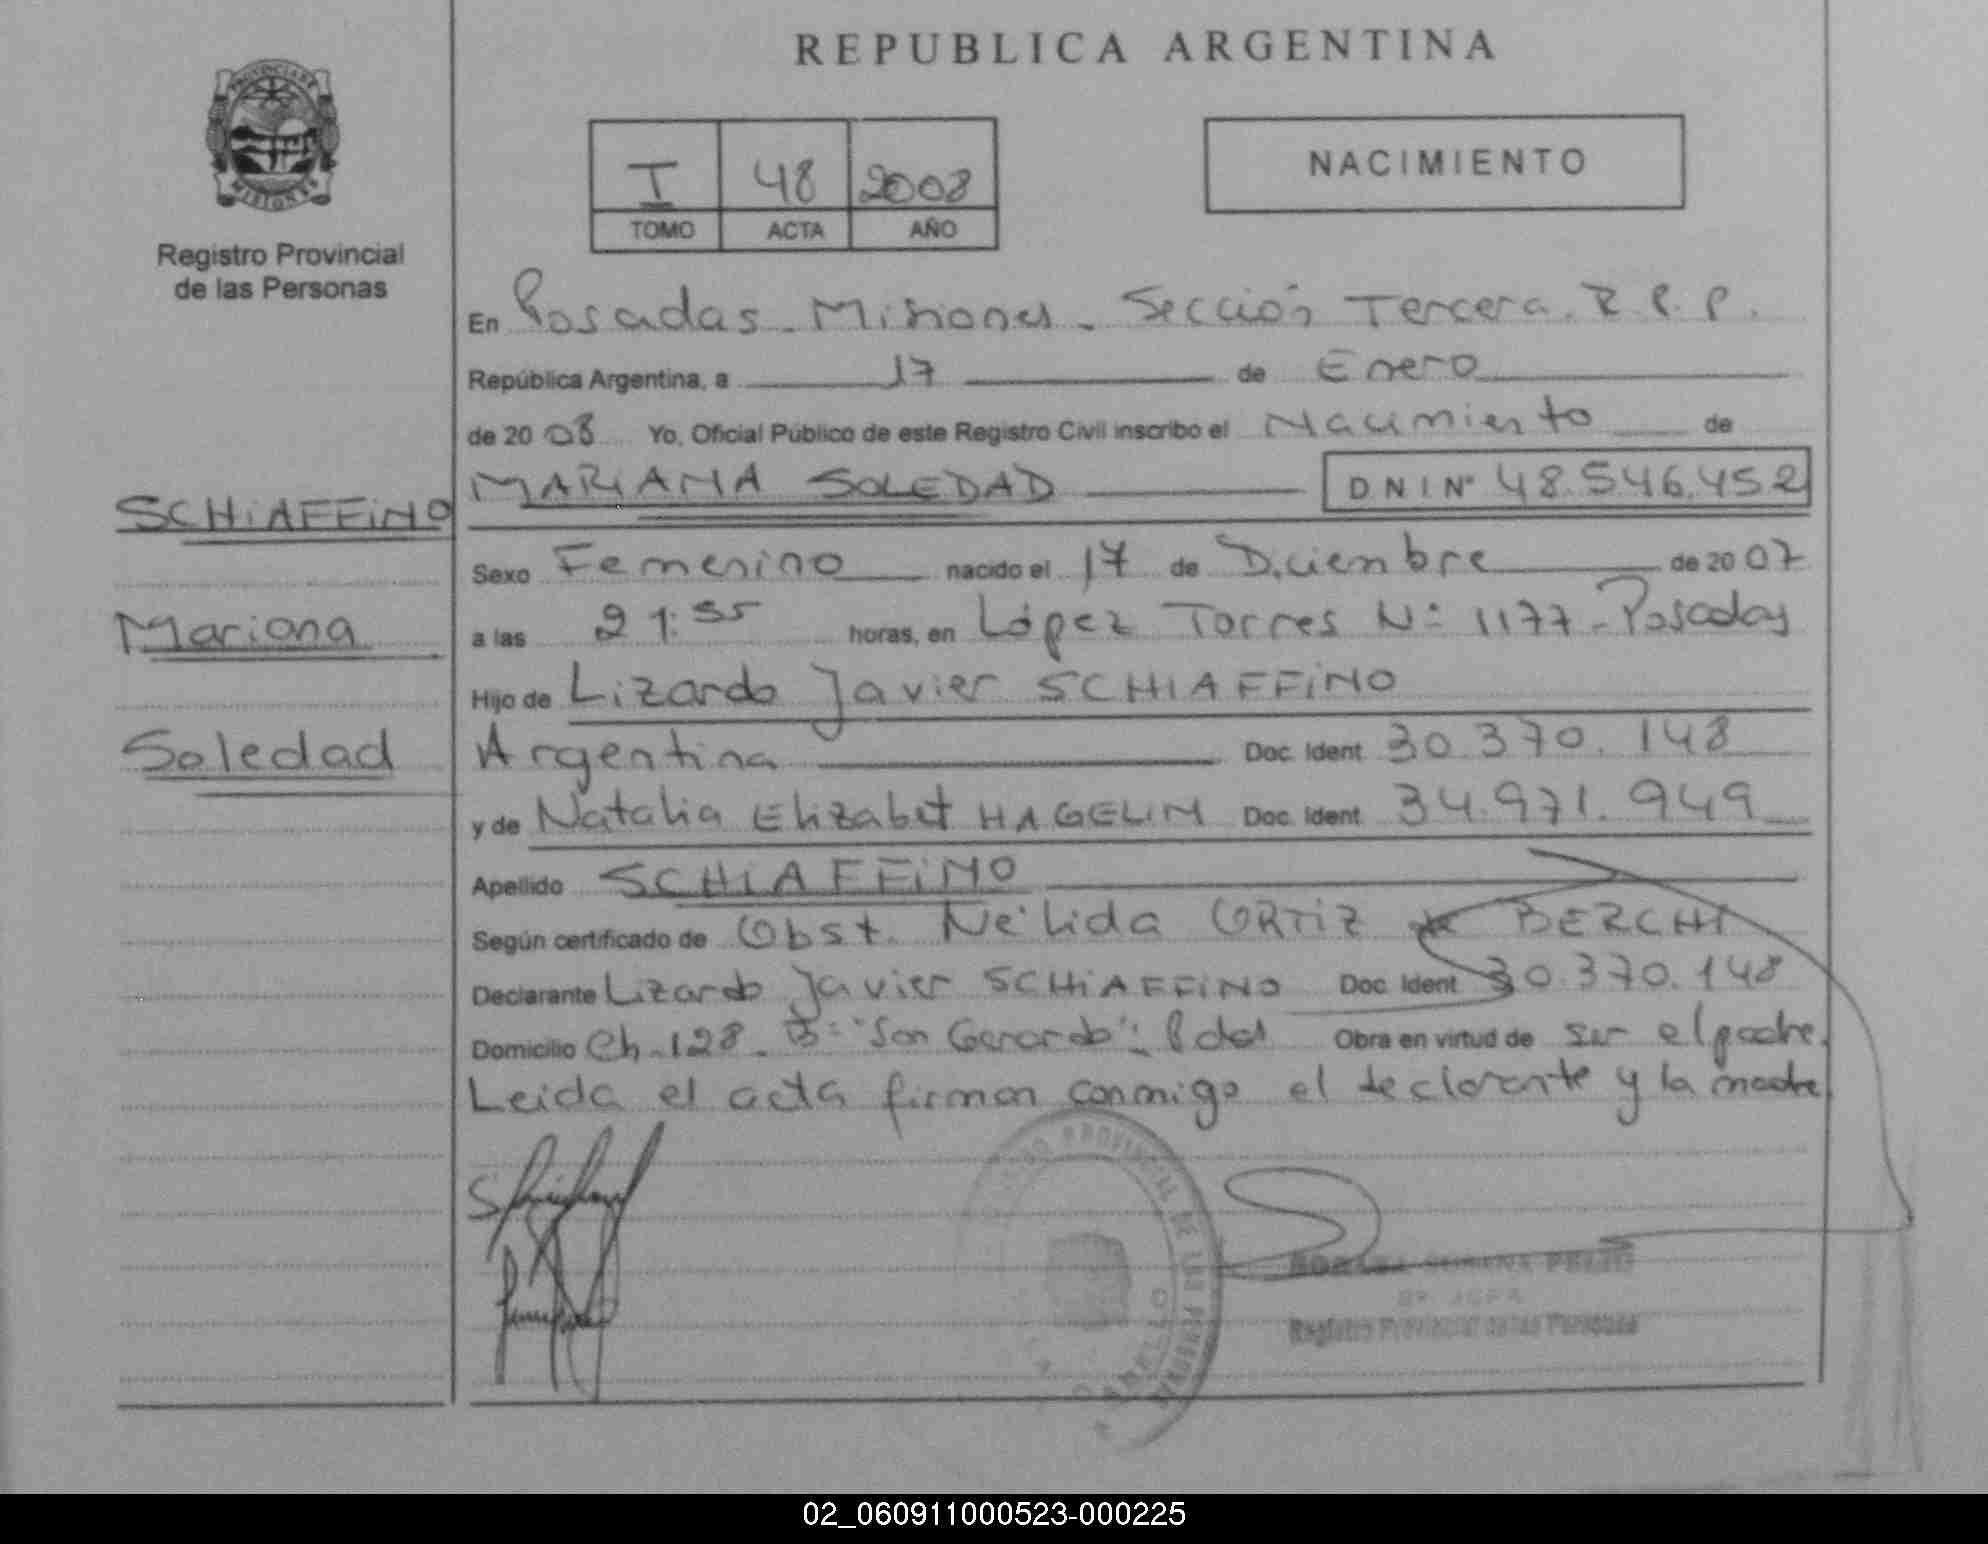 REPUBLICA ARGENTINA
PROVINCIA DE
MISIONES
Registro Provincial
de las Personas
I 48 2008
TOMO ACTA AÑO
NACIMIENTO
En Posadas - Misiones - Sección Tercera. R. P. P.
República Argentina, a 17 de Enero
de 20 08 Yo, Oficial Público de este Registro Civil inscribo el Nacimiento de
MARIANA SOLEDAD DNI Nº 48.546.452
SCHiAFFiNO
Sexo Femenino nacido el 17 de Diciembre de 20 07
Mariana
a las 21:55 horas, en López Torres Nº 1177 - Posadas
Hijo de Lizardo Javier SCHIAFFiNO
Soledad
Argentina Doc. Ident 30.370.148
y de Natalia Elizabet HAGELIN Doc. Ident 34.971.949
Apellido SCHiAFFiNO
Según certificado de Obst. Nélida ORTIZ BERCHI
Declarante Lizardo Javier SCHiAFFiNO Doc. Ident 30.370.148
Domicilio Ch. 128 - Bº "San Gerardo" - Pdas Obra en virtud de ser el padre.
Leida el acta firman conmigo el declarante y la madre
REGISTRO PROVINCIAL DE LAS PERSONAS
Registro Provincial de las Personas
02_060911000523-000225